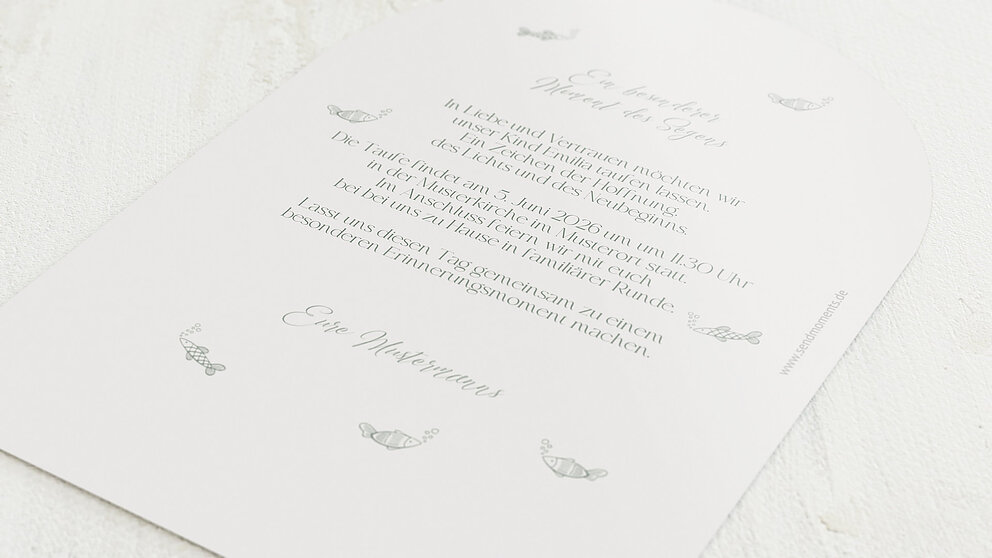 Ein besonderer
Moment des Segens
In Liebe und Vertrauen möchten wir
unser Kind Emilia taufen lassen.
Ein Zeichen der Hoffnung,
des Lichts und des Neubeginns.
Die Taufe findet am 5. Juni 2026 um um 11.30 Uhr
in der Musterkirche im Musterort statt.
Im Anschluss feiern wir mit euch
bei bei uns zu Hause in familiärer Runde.
Lasst uns diesen Tag gemeinsam zu einem
besonderen Erinnerungsmoment machen.
Eure Mustermanns
www.sendmoments.de